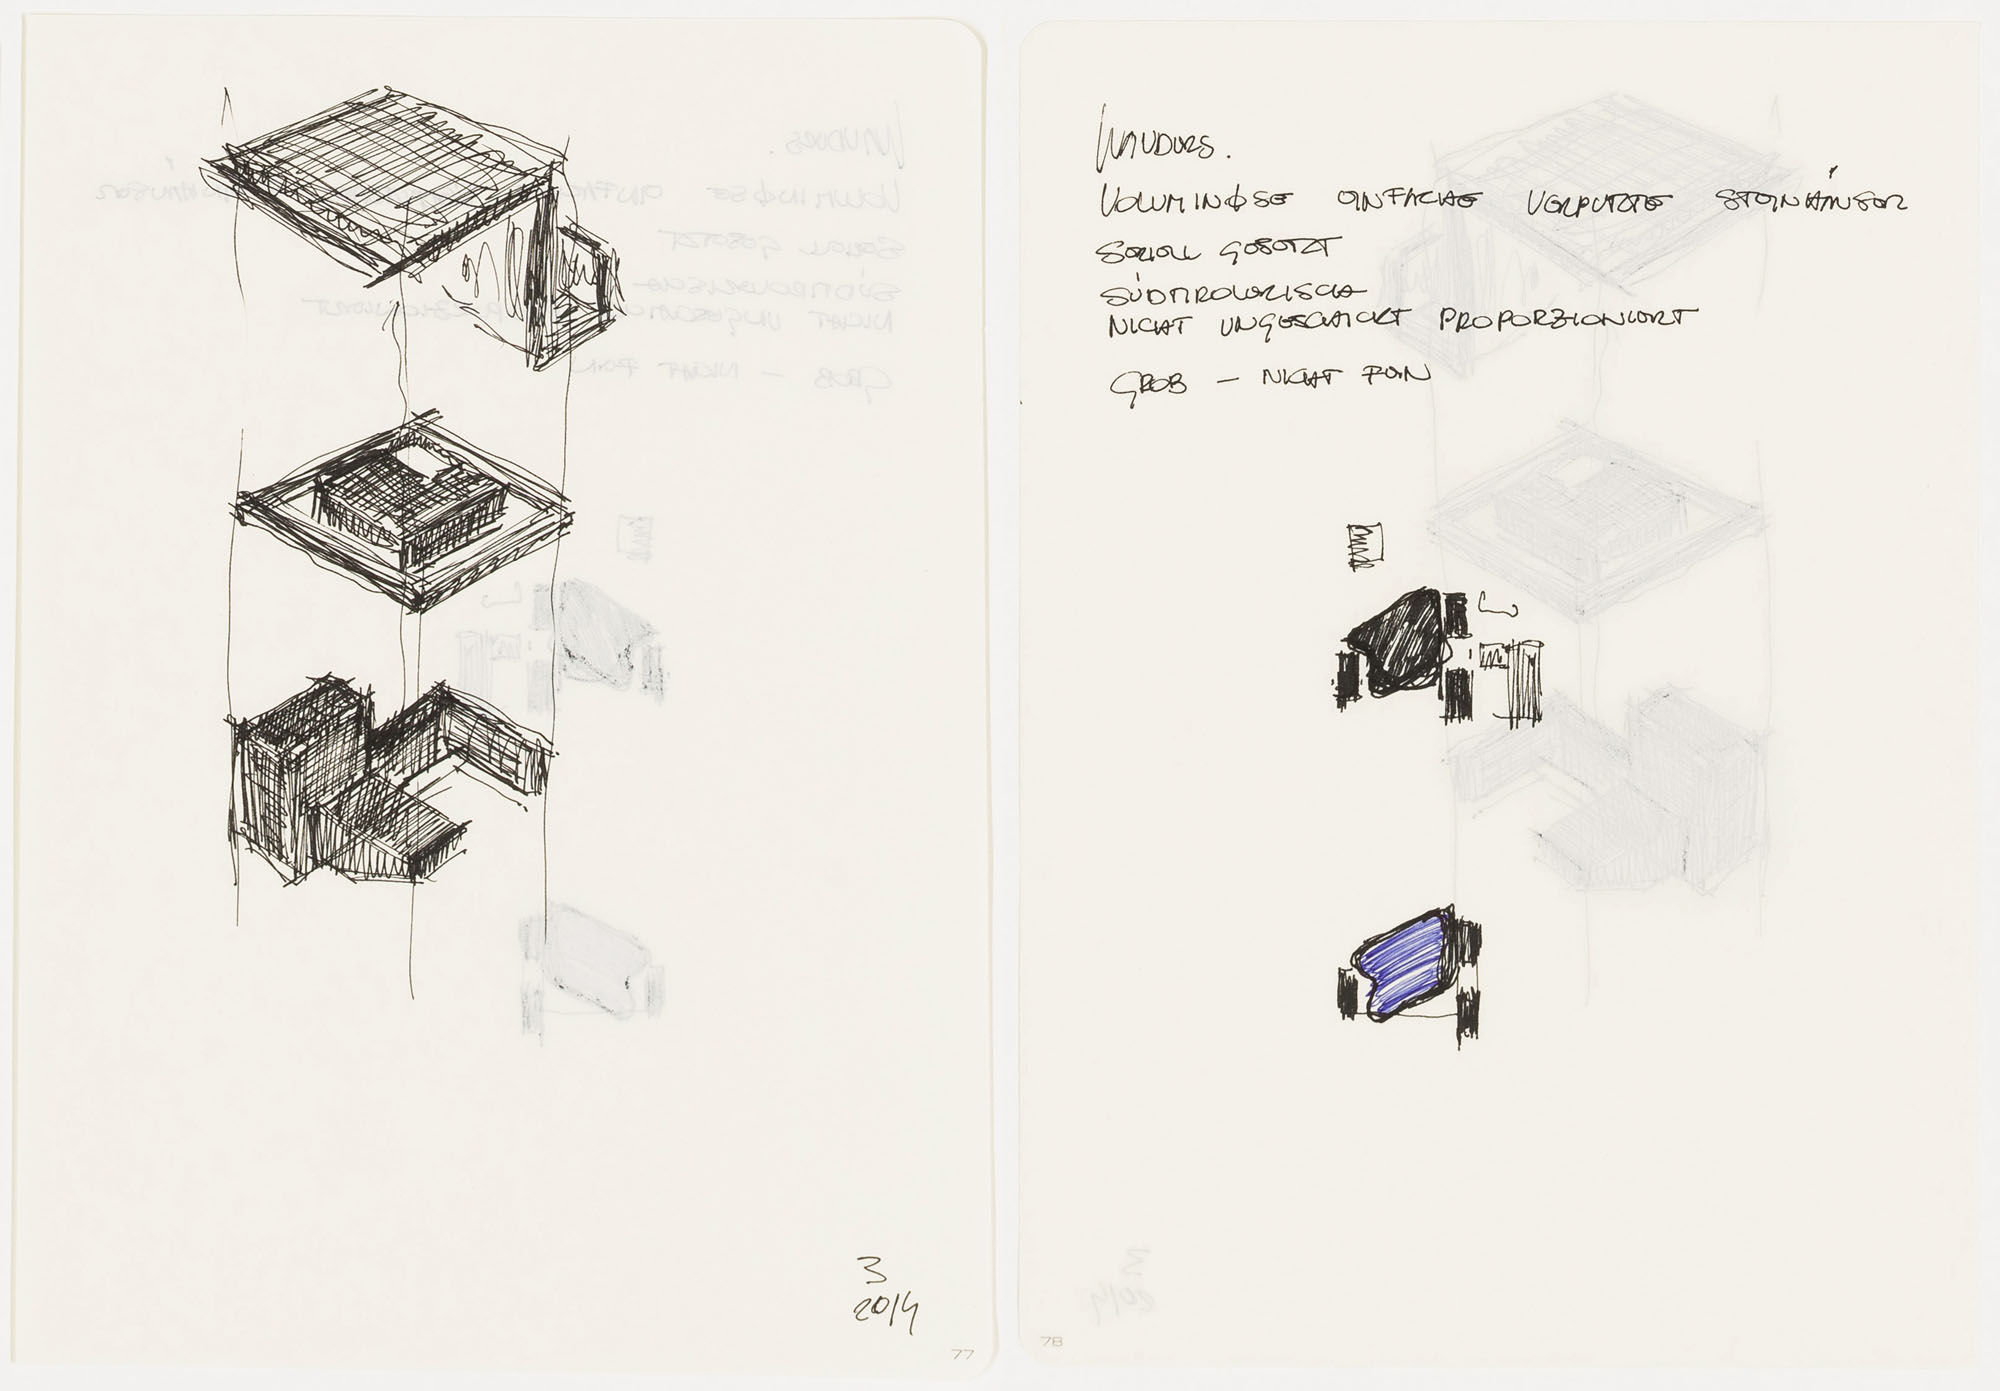 3
2014
77
NAUDERS.
VOLUMINØSE EINFACHE VERPUTZTE STEINHÄUSER
SERIELL GESETZT
SÜDTIROLERISCH
NICHT UNGESCHICKT PROPORZIONIERT
GROB – NICHT FEIN
78